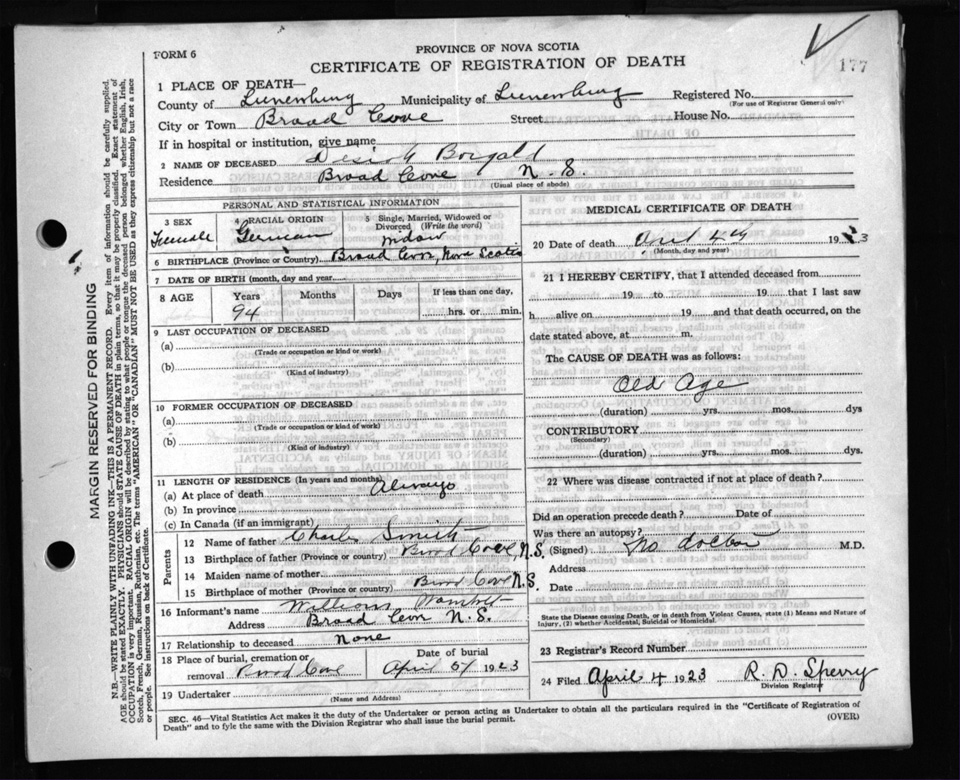 PROVINCE OF NOVA SCOTIA
FORM 6
CERTIFICATE OF REGISTRATION OF DEATH
177
1 PLACE OF DEATH—
County of Lunenburg Municipality of Lunenburg Registered No.
(For use of Registrar General only)
City or Town Broad Cove Street House No.
If in hospital or institution, give name
2 NAME OF DECEASED
Residence Broad Cove N. S.
(Usual place of abode)
PERSONAL AND STATISTICAL INFORMATION
3 SEX 4 RACIAL ORIGIN 5 Single, Married, Widowed or Divorced (Write the word)
Female German widow
6 BIRTHPLACE (Province or Country) Broad Cove, Nova Scotia
7 DATE OF BIRTH (month, day and year)
8 AGE Years Months Days If less than one day,
94 hrs. or min.
9 LAST OCCUPATION OF DECEASED
(a)
(Trade or occupation or kind or work)
(b)
(Kind of industry)
10 FORMER OCCUPATION OF DECEASED
(a)
(Trade or occupation or kind of work)
(b)
(Kind of industry)
11 LENGTH OF RESIDENCE (In years and months)
(a) At place of death Always
(b) In province
(c) In Canada (if an immigrant)
Parents
12 Name of father Charles Smith
13 Birthplace of father (Province or country) Broad Cove, N.S.
14 Maiden name of mother
15 Birthplace of mother (Province or country) Broad Cove N.S.
16 Informant's name William
Address Broad Cove N. S.
17 Relationship to deceased None
18 Place of burial, cremation or removal Broad Cove Date of burial April 5/ 1923
19 Undertaker
(Name and Address)
MEDICAL CERTIFICATE OF DEATH
20 Date of death 19 3
(Month, day and year)
21 I HEREBY CERTIFY, that I attended deceased from
19 to 19 that I last saw
h alive on 19 and that death occurred, on the
date stated above, at m.
The CAUSE OF DEATH was as follows:
Old Age
(duration) yrs. mos. dys
CONTRIBUTORY
(Secondary)
(duration) yrs. mos. dys.
22 Where was disease contracted if not at place of death?
Did an operation precede death? Date of
Was there an autopsy?
(Signed) No doctor M.D.
Address
Date
State the Disease causing Death, or in death from Violent Causes, state (1) Means and Nature of
Injury, (2) whether Accidental, Suicidal or Homicidal.
23 Registrar's Record Number
24 Filed April 4 1923 R. D. Sperry
Division Registrar
SEC. 46—Vital Statistics Act makes it the duty of the Undertaker or person acting as Undertaker to obtain all the particulars required in the "Certificate of Registration of
Death" and to fyle the same with the Division Registrar who shall issue the burial permit.
(OVER)
MARGIN RESERVED FOR BINDING
N.B.—WRITE PLAINLY WITH UNFADING INK—THIS IS A PERMANENT RECORD. Every item of information should be carefully supplied.
AGE should be stated EXACTLY. PHYSICIANS should STATE CAUSE OF DEATH in plain terms, so that it may be properly classified. Exact statement of
OCCUPATION is very important. RACIAL ORIGIN will be described by stating to what people or tongue the deceased person belonged whether English, Irish,
Scotch, French, German, Russian, Ruthenian, etc. The terms "AMERICAN" or "CANADIAN" MUST NOT BE USED as they express citizenship but not a race
or people. See instructions on back of Certificate.